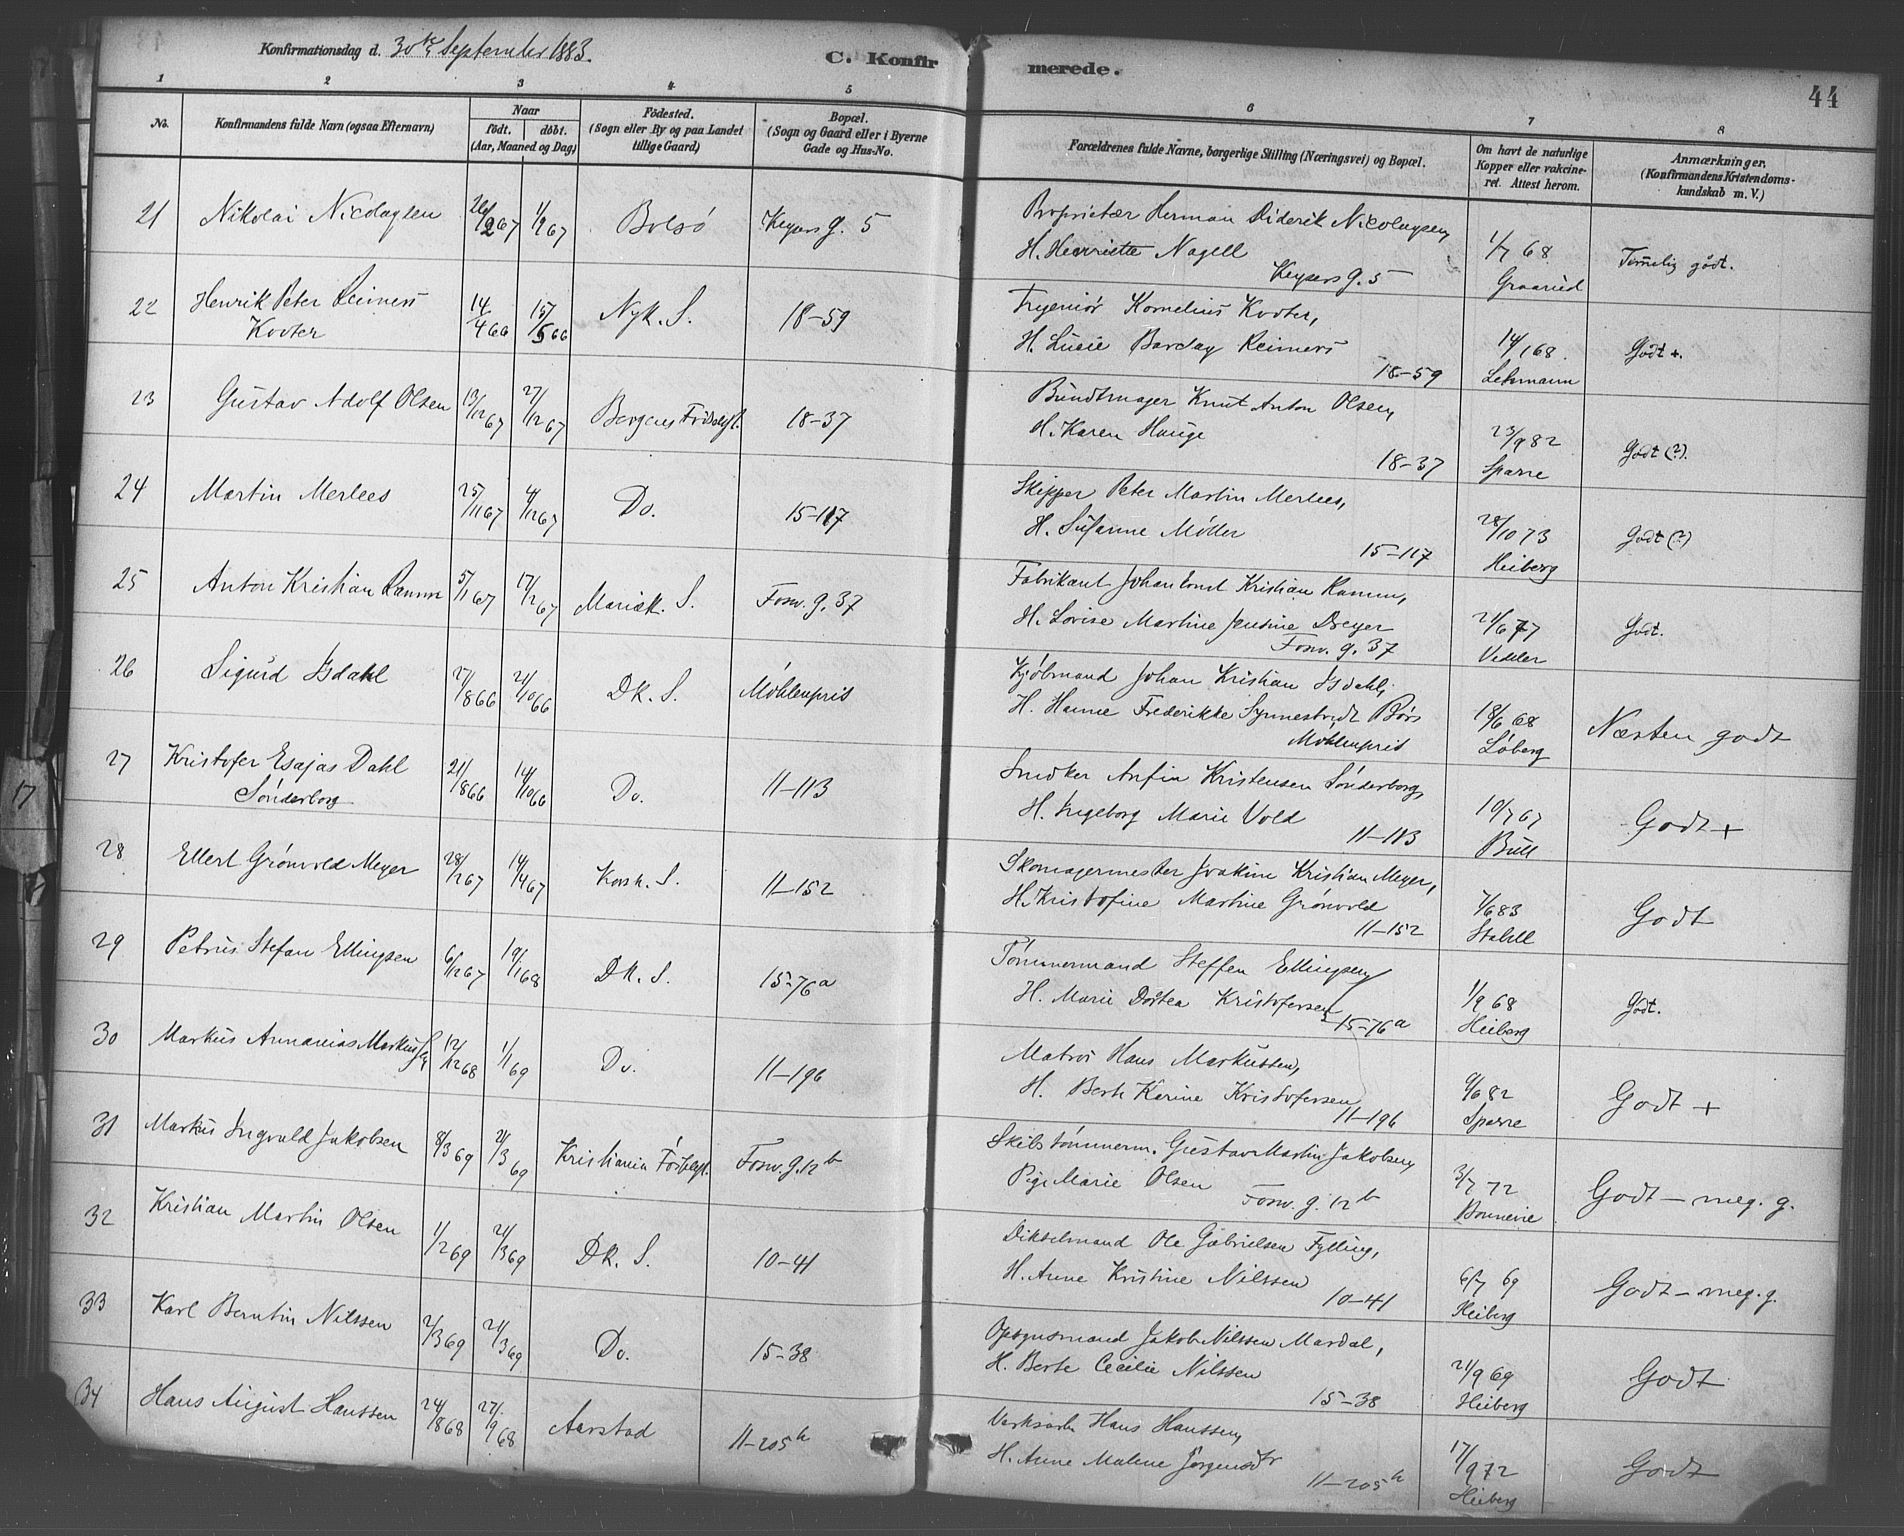 Konfirmationsdag d. 30te September 1883.
C. Konfirmerede.
44
1 2 3 4 5 6 7 8
No.
Konfirmandens fulde Navn (ogsaa Efternavn)
Naar
födt. döbt.
(Aar, Maaned og Dag)
Födested.
(Sogn eller By og paa Landet
tillige Gaard)
Bopæl.
(Sogn og Gaard eller i Byerne
Gade og Hus-No.
Forældrenes fulde Navne, borgerlige Stilling (Næringsvei) og Bopæl.
Om havt de naturlige
Kopper eller vakcine-
ret. Attest herom.
Anmærkninger.
(Konfirmandens Kristendoms-
kundskab m. V.)
21 Nikolai Nicolaysen 26/2 67 1/9 67 Bolsö Keysers g. 5 Proprietær Herman Diderik Nicolaysen,
H. Henriette Nagell 1/7 68 Temelig godt.
Keysers g. 5 Graarud
22 Henrik Peter Reimers 14/4 66 15/5 66 Nyk. S. 18-59 Ingeniör Kornelius Kooter,
Kooter H. Lucie Barclay Reimers 14/1 68. Godt +.
18-59 Lehmann
23 Gustav Adolf Olsen 13/12 67 27/12 67 Bergens Födselsst. 18-37 Bundtmager Knut Anton Olsen,
H. Karen Hauge 23/9 82 Godt (?).
18-37 Sparre
24 Martin Merlees 25/11 67 4/12 67 Do. 15-117 Skipper Peter Martin Merlees,
H. Susanne Möller 28/10 73 Godt (?)
15-117 Heiberg
25 Anton Kristian Ramm 5/1 67 17/2 67 Mariæk. S. Fosw. g. 37 Fabrikant Johan Ernst Kristian Ramm,
H. Lovise Martine Jensine Dreyer 21/6 77 Godt.
Fosw. g. 37 Vedeler
26 Sigurd Isdahl 27/8 66 21/10 66 DK. S. Möhlenpris Kjöbmand Johan Kristian Isdahl,
H. Hanne Frederikke Synnestvedt Börs 18/6 68 Næsten godt
Möhlenpris Löberg
27 Kristofer Esajas Dahl 21/8 66 14/10 66 Do. 11-113 Snedker Anfin Kristensen Sönderborg,
Sönderborg H. Ingeborg Marie Vold 10/7 67 Godt +
11-113 Bull
28 Ellert Grönvold Meyer 28/1 67 14/4 67 Korsk. S. 11-152 Skomagermester Joakim Kristian Meyer,
H. Kristofine Martine Grönvold 7/6 83 Godt
11-152 Stabell
29 Petrus Stefan Ellingsen 6/12 67 19/1 68 DK. S. 15-76a Tömmermand Steffen Ellingsen
H. Marie Dortea Kristofersen 1/9 68 Godt.
15-76a Heiberg
30 Markus Annanias Markussen 12/12 68 1/1 69 Do. 11-196 Matros Hans Markussen,
H. Berte Karine Kristofersen 6/6 82 Godt +
11-196 Sparre
31 Markus Ingvald Jakobsen 8/3 69 21/3 69 Kristiania Födselsst. Fosw. g. 12b Skibstömmerm. Gustav Martin Jakobsen,
Pige Marie Olsen 3/7 72 Godt - meg. g.
Fosw. g. 12b Bonnevie
32 Kristian Martin Olsen 1/2 69 21/3 69 DK. S. 10-41 Dikselmand Ole Gabrielsen Fylling,
H. Anne Kristine Nilssen 6/7 69 Godt - meg. g.
10-41 Heiberg
33 Karl Berntin Nilssen 2/3 69 21/3 69 Do. 15-38 Opsynsmand Jakob Nilssen Mardal,
H. Berte Cecilie Nilssen 21/9 69 Godt
15-38 Heiberg
34 Hans August Hanssen 24/8 68 27/9 68 Aarstad 11-205h Verksarb. Hans Hanssen,
H. Anne Malene Jörgensdtr 17/9 72 Godt
11-205h Heiberg
17